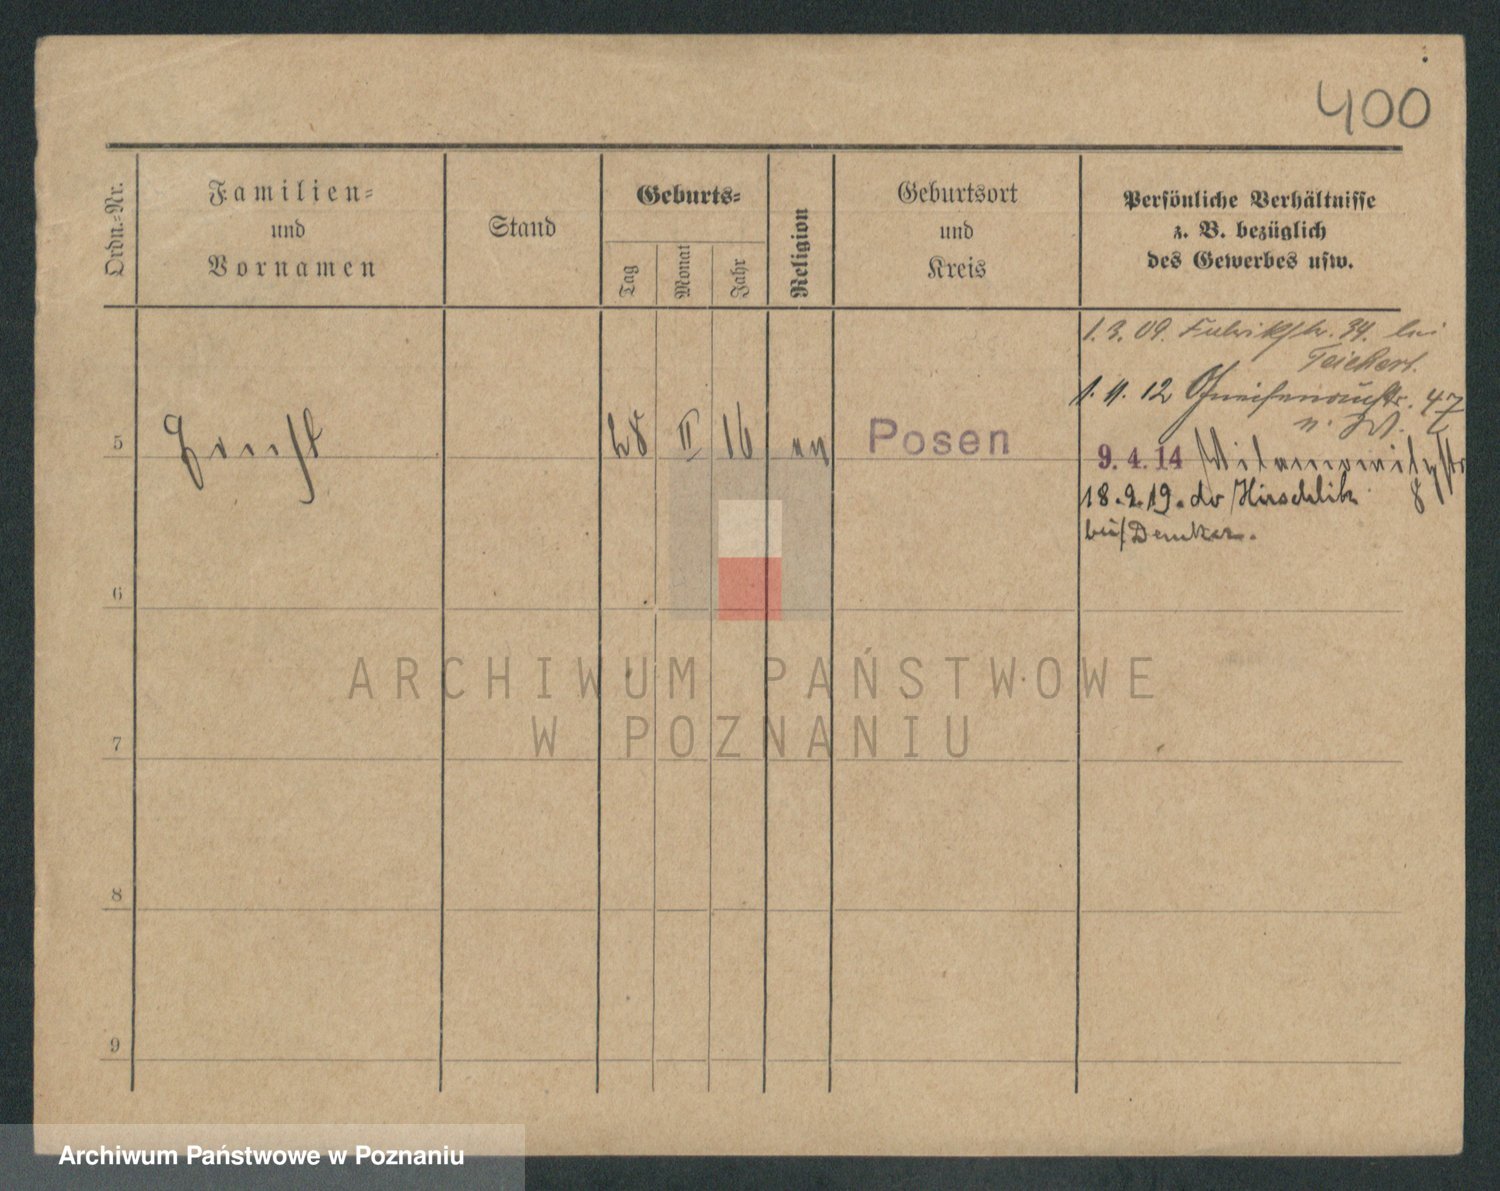 400
Ordn.=Nr.
Familien=
und
Vornamen
Stand
Geburts=
Tag
Monat
Jahr
Religion
Geburtsort
und
Kreis
Persönliche Verhältnisse
z. B. bezüglich
des Gewerbes usw.
1. 3. 09. 34. bei
Teichert.
1. 11. 12 Gneisenaustr. 47
5
28 II 16 ev
Posen
9. 4. 14 8
18.2.19. do Hirschlik
bei Denker.
6
7
8
9
ARCHIWUM PAŃSTWOWE
W POZNANIU
Archiwum Państwowe w Poznaniu